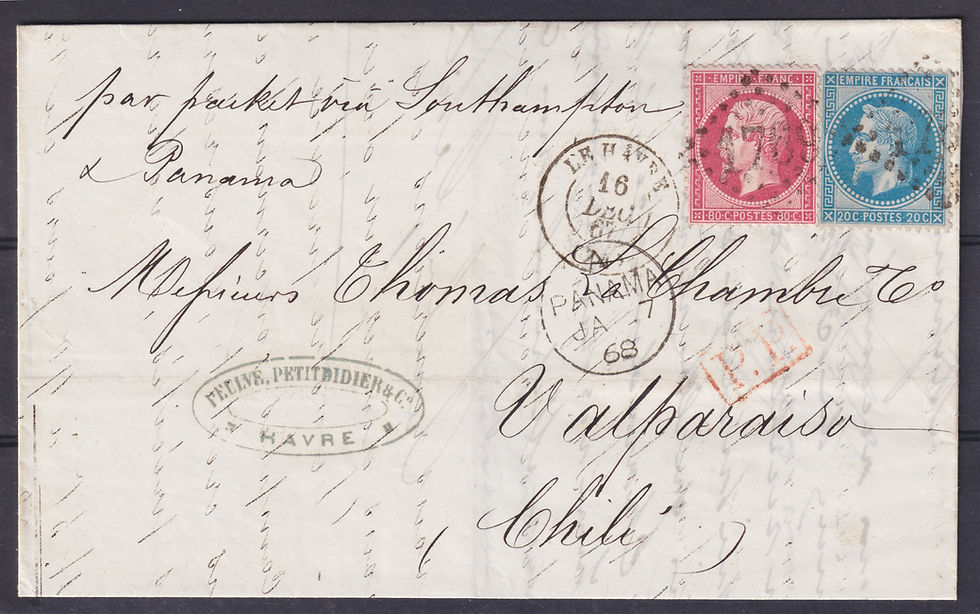 par packet via Southampton
& Panama
EMPIRE FRANC
80 C·POSTES·80 C
EMPIRE FRANÇAIS
20 C·POSTES 20 C
LE HAVRE
16
DEC
67
Messieurs Thomas La Chambre Co
PANAMA
JA 1
68
P.P.
PETITDIDIER & Co
HAVRE
Valparaiso
(Chili)